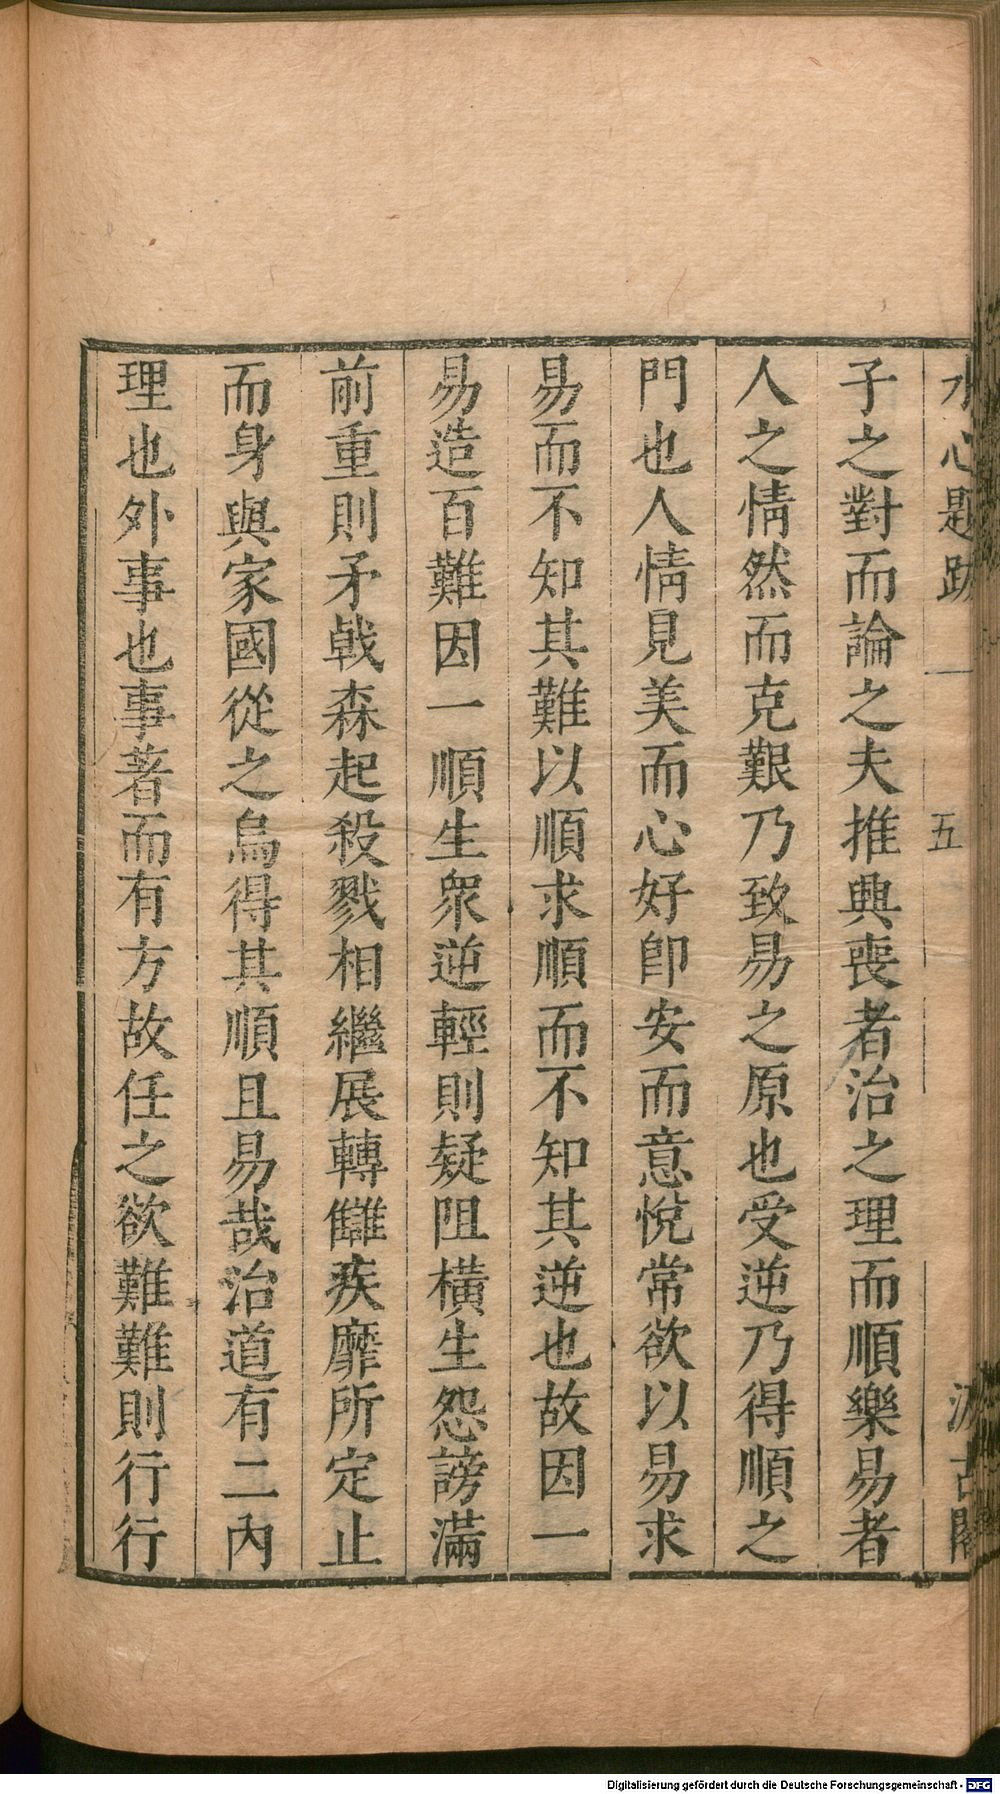 水心題跋 一 五 汲古閣
子之對而論之夫推興喪者治之理而順樂易者
人之情然而克艱乃致易之原也受逆乃得順之
門也人情見美而心好卽安而意悅常欲以易求
易而不知其難以順求順而不知其逆也故因一
易造百難因一順生衆逆輕則疑阻橫生怨謗滿
前重則矛戟森起殺戮相繼展轉讎疾靡所定止
而身與家國從之烏得其順且易哉治道有二內
理也外事也事著而有方故任之欲難難則行行
Digitalisierung gefördert durch die Deutsche Forschungsgemeinschaft - DFG